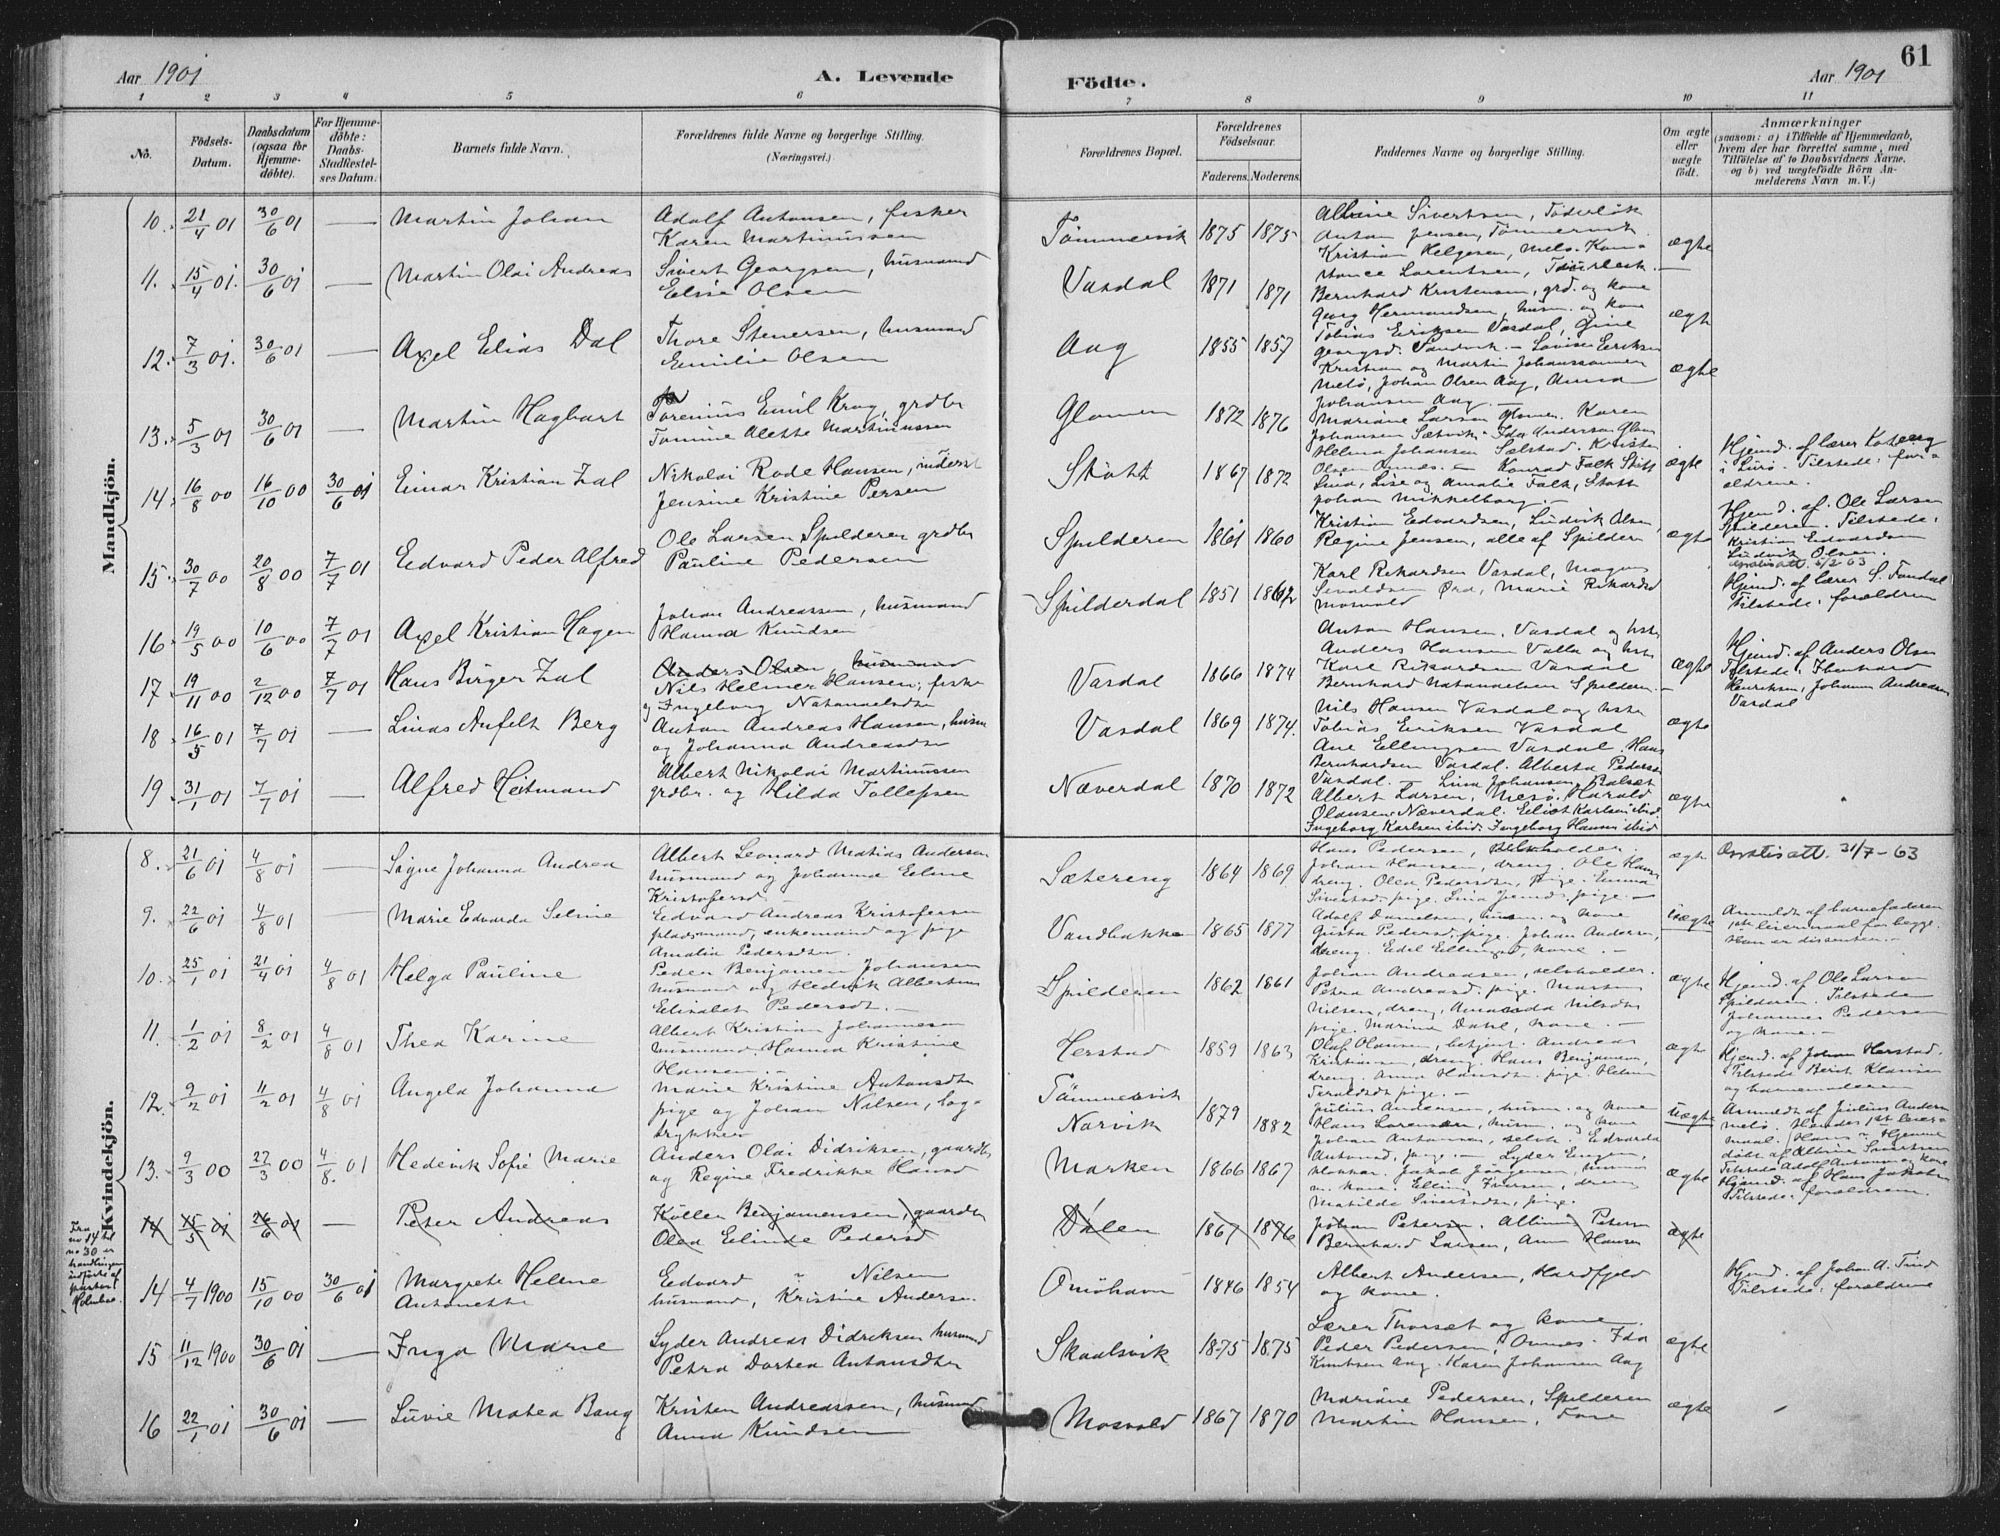 Aar 1901
A. Levende
Födte.
Aar 1901
61
1 2 3 4 5 6 7 8 9 10 11
No.
Födsels-
Datum.
Daabsdatum
(ogsaa for
Hjemme-
döbte).
For Hjemme-
döbte:
Daabs-
Stadfæstel-
ses Datum.
Barnets fulde Navn.
Forældrenes fulde Navne og borgerlige Stilling.
(Næringsvei.)
Forældrenes Bopæl.
Forældrenes
Födselsaar.
Faderens. Moderens.
Faddernes Navne og borgerlige Stilling.
Om ægte
eller
uægte
födt.
Anmærkninger
(saasom: a) i Tilfælde af Hjemmedaab,
hvem der har forrettet samme, med
Tilföielse af to Daabsvidners Navne.
og b) ved uægtefödte Börn An-
melderens Navn m. V.)
Mandkjön.
10. 21/4 01 30/6 01 — Martin Johan
Adolf Antonsen, fisker
Karen Martinussen
Tømmervik 1875 1875
Albine Sivertsen,
Anton Jensen, Tømmervik
Kristian Helgesen, Melø.
ægte
11. 15/4 01. 30/6 01 — Martin Olai Andreas
Sivert Georgsen, husmand
Elise Olsen
Vasdal 1871 1871
Bernhard Kristensen, grd. og kone
Georg Hermandsen, husm. og kone
ægt
12. 7/3 01. 30/6 01 — Axel Elias Dal
Thore Stenersen, husmand
Emilie Olsen
Aag 1855 1857
Tobias Eriksen Vasdal, Gine
Georgsd. Sandvik. — Lovise Eriksen
Kristian og Martin Johannesen
Melø, Johan Olsen Aag, Anna
Johansen Aag. —
ægte
13. 5/3 01 30/6 01 — Martin Hagbart
Torenius Emil Krog, grdbr
Tomine Alette Martinussen
Glomen 1872 1876
Mariane Larsen Glomen. Karen
Johansen Sætvik. Ida Andersen Glom
Helena Johansen Selstad. Kristen
Olsen
14. 16/8 00 16/10 00 30/6 01 Einar Kristian Zal
Nikolai Rode Hansen, inderst
Jensine Kristine Persen
Støtt 1867 1872
Konrad Falk Støtt
Lina, Lise og Amalie Falk, Støtt
Johan Mikkelborg. —
ægte
Hjemd. af lærer
i Lurø. Tilstede: for-
ældrene.
15. 30/7 00 20/8 00 7/7 01 Edvard Peder Alfred
Ole Larsen Spilderen grdbr
Pauline Pedersen
Spilderen 1861 1860
Kristian Edvardsen, Ludvik Olsen,
Regine Jensen, alle af Spildern
ægte
Hjemd. af. Ole Larsen
Spilderen. Tilstede:
Kristian Edvardsen
Ludvik Olsen.
16. 19/5 00 10/6 00 7/7 01 Axel Kristian Hagen
Johan Andreassen, husmand
Hanna Knudsen
Spilderdal 1851 1862
Karl Rikardsen Vasdal, Mogens
Sivaldsen Øra, Marie Rikardsd
Mosvold
Hjemd. af lærer S. Fondal
Tilstede: forældren
17. 19/11 00 2/12 00 7/7 01 Hans Birger Zal
Anders Olsen, husmand
Nils Helmer Hansen, fiske
og Ingeborg Natanaelsdtr
Vasdal 1866 1874
Anton Hansen, Vasdal og hstr
Anders Hansen Valla og hstr
Karl Rikardsen Vasdal
Bernhard Natanaelsen Spildern. —
ægte
Hjemd. af Anders Olsen
Tilstede:
Henriksen, Johann Andreasen
Vasdal
18. 16/5 01 7/7 01 — Linas Anfelt Berg
Anton Andreas Hansen, husm
og Johanna Andreasdtr
Vasdal 1869 1874.
Nils Hansen Vasdal og hstr
Tobias Eriksen Vasdal
Ane Ellingsen Vasdal. Hans
Berntsen Vasdal. Alberta Pedersen
Vasdal. —
ægte
19. 31/1 01 7/7 01 — Alfred Heitmand
Albert Nikolai Martinussen
grdbr. og Hilda Tollefsen
Næverdal 1870 1872
Lina Johansen, Balset
Albert Larsen, Melø. Harald
Olausen, Næverdal. Eliot Karlsen ibid.
Ingeborg Karlsen ibid. Ingeborg Hanns ibid
ægte
Kvindekjön.
8. 21/6 01 4/8 01 — Signe Johanna Andrea
Albert Leonard Matias Andersen
husmand og Johanna Eline
Kristofersd.
Sætereng 1864 1869
Hans Pedersen, selvholder.
Johan Hansen, dreng. Ole Hans
dreng. Olea Pedersdtr, pige. Emma
Sivertsd. pige. Lina Jensd. pige. —
ægt
attest. 31/7-63
9. 22/6 01 4/8 01 — Marie Edvarda Seline
Edvard Andreas Kristofersen
pladsmand, enkemand og pige
Amalia Pedersdtr.
Vandbakke 1865 1877
Adolf Danielsen, husm. og kone
Gusta Pedersd. pige. Johan Andersen,
dreng. Edel Ellingsd, kone. —
uægte
Anmeldt af barnefaderen
1ste leiermaal for begge.
Han er dissenter. —
10. 25/1 01 21/4 01 4/8 01 Helga Pauline
Peder Benjamin Johansen
husmand og Hedvik Albertine
Elisabet Pedersdt. —
Spilderen 1862 1861
Johan Andreasen, selvholder.
Petra Andreasd. pige. Morten
Nilsen, dreng, Amanda Nilsdtr
pige. Marina Dahl, kone. —
ægte
Hjemd. af Ole Larsen
Spilderen. Tilstede
Johannes Pedersen
og kone. —
11. 1/2 01 8/2 01 4/8 01 Thea Karine
Albert Kristian Johannesen
husmand. Hanna Kristine
Hansen. —
Herstad 1859 1863
Olaf Olausen, betjent. Andreas
Kristiansen, dreng. Hans Benjaminsen,
dreng. Anna Hansdtr. pige. Helene
Haraldsdt pige. —
ægte
Hjemd. af Johan Herstad.
Tilstede Berit Klausen
og barnemoderen
12. 9/2 01 11/2 01 4/8 01 Angela Johanna
Marie Kristine Antonsdtr
pige og Johan Nilsen, bog-
trykker
Tømmervik
Narvik 1879 1882
Julius Andersen, husm. og kone
Hans Lorensen, husm. og kone
Johan Antonsen, selvh. Edvarda
Antonsd, pige. —
uægte
Anmeldt af Julius Anders
Melø. Hendes 1ste leier-
maal. Hans Hjemme
døbt af Albine Sivertsen
Tilstede Adolf Antonsen og kone
13. 9/3 00 27/3 00 4/8. 01 Hedevik Sofie Marie
Anders Olai Didriksen, gaardbr
og Regine Fredrikke Hansd
Marken 1866 1867
Lyder Engen,
klokker. Jakob Jørgensen, husman
m. kone. Elling Iversen, dreng
Matilde Sivertsdtr, pige.
ægte
Hjemd. af Hans Jakobsen
Tilstede: forældrene.
14 15/5 01 26/6 01 — Peter Andreas
Køller Benjamensen, gaardbr
Olea Elinde Pedersd
Dalen 1867 1876
Johan Petersen. Albine Peters
Bernhard Larsen, Ann Hansen
ægte
Fra
no 14 til
no 30 er
handlingen
udført af
pastor
Holmboe.
14 4/7 1900 15/10 00 30/6 01 Margrete Helene
Antonette
Edvard Nilsen
husmand, Kristine Anders.
Omøhavn 1846 1854
Albert Andersen, Hardfjeld
og kone.
Hjemd. af Johan A. Tind
Tilstede: forældrene
15 11/12 1900 30/6 01 — Inga Marie
Lyder Andreas Didriksen husmand
Petra Dortea Antonsdtr
Skaalsvik 1875 1875
Lærer Thorset og kone.
Peder Pedersen, Ovnes. Ida
Knutsen Aag. Karen Johansen Aag
ægte
16 22/1 01 30/6 01 — Luvie Matea Bang
Kristen Andreassen, husmand
Anna Knudsen
Mosvold 1867 1870
Mariane Pedersen, Spilderen
Martin Hansen, Fore
ægte